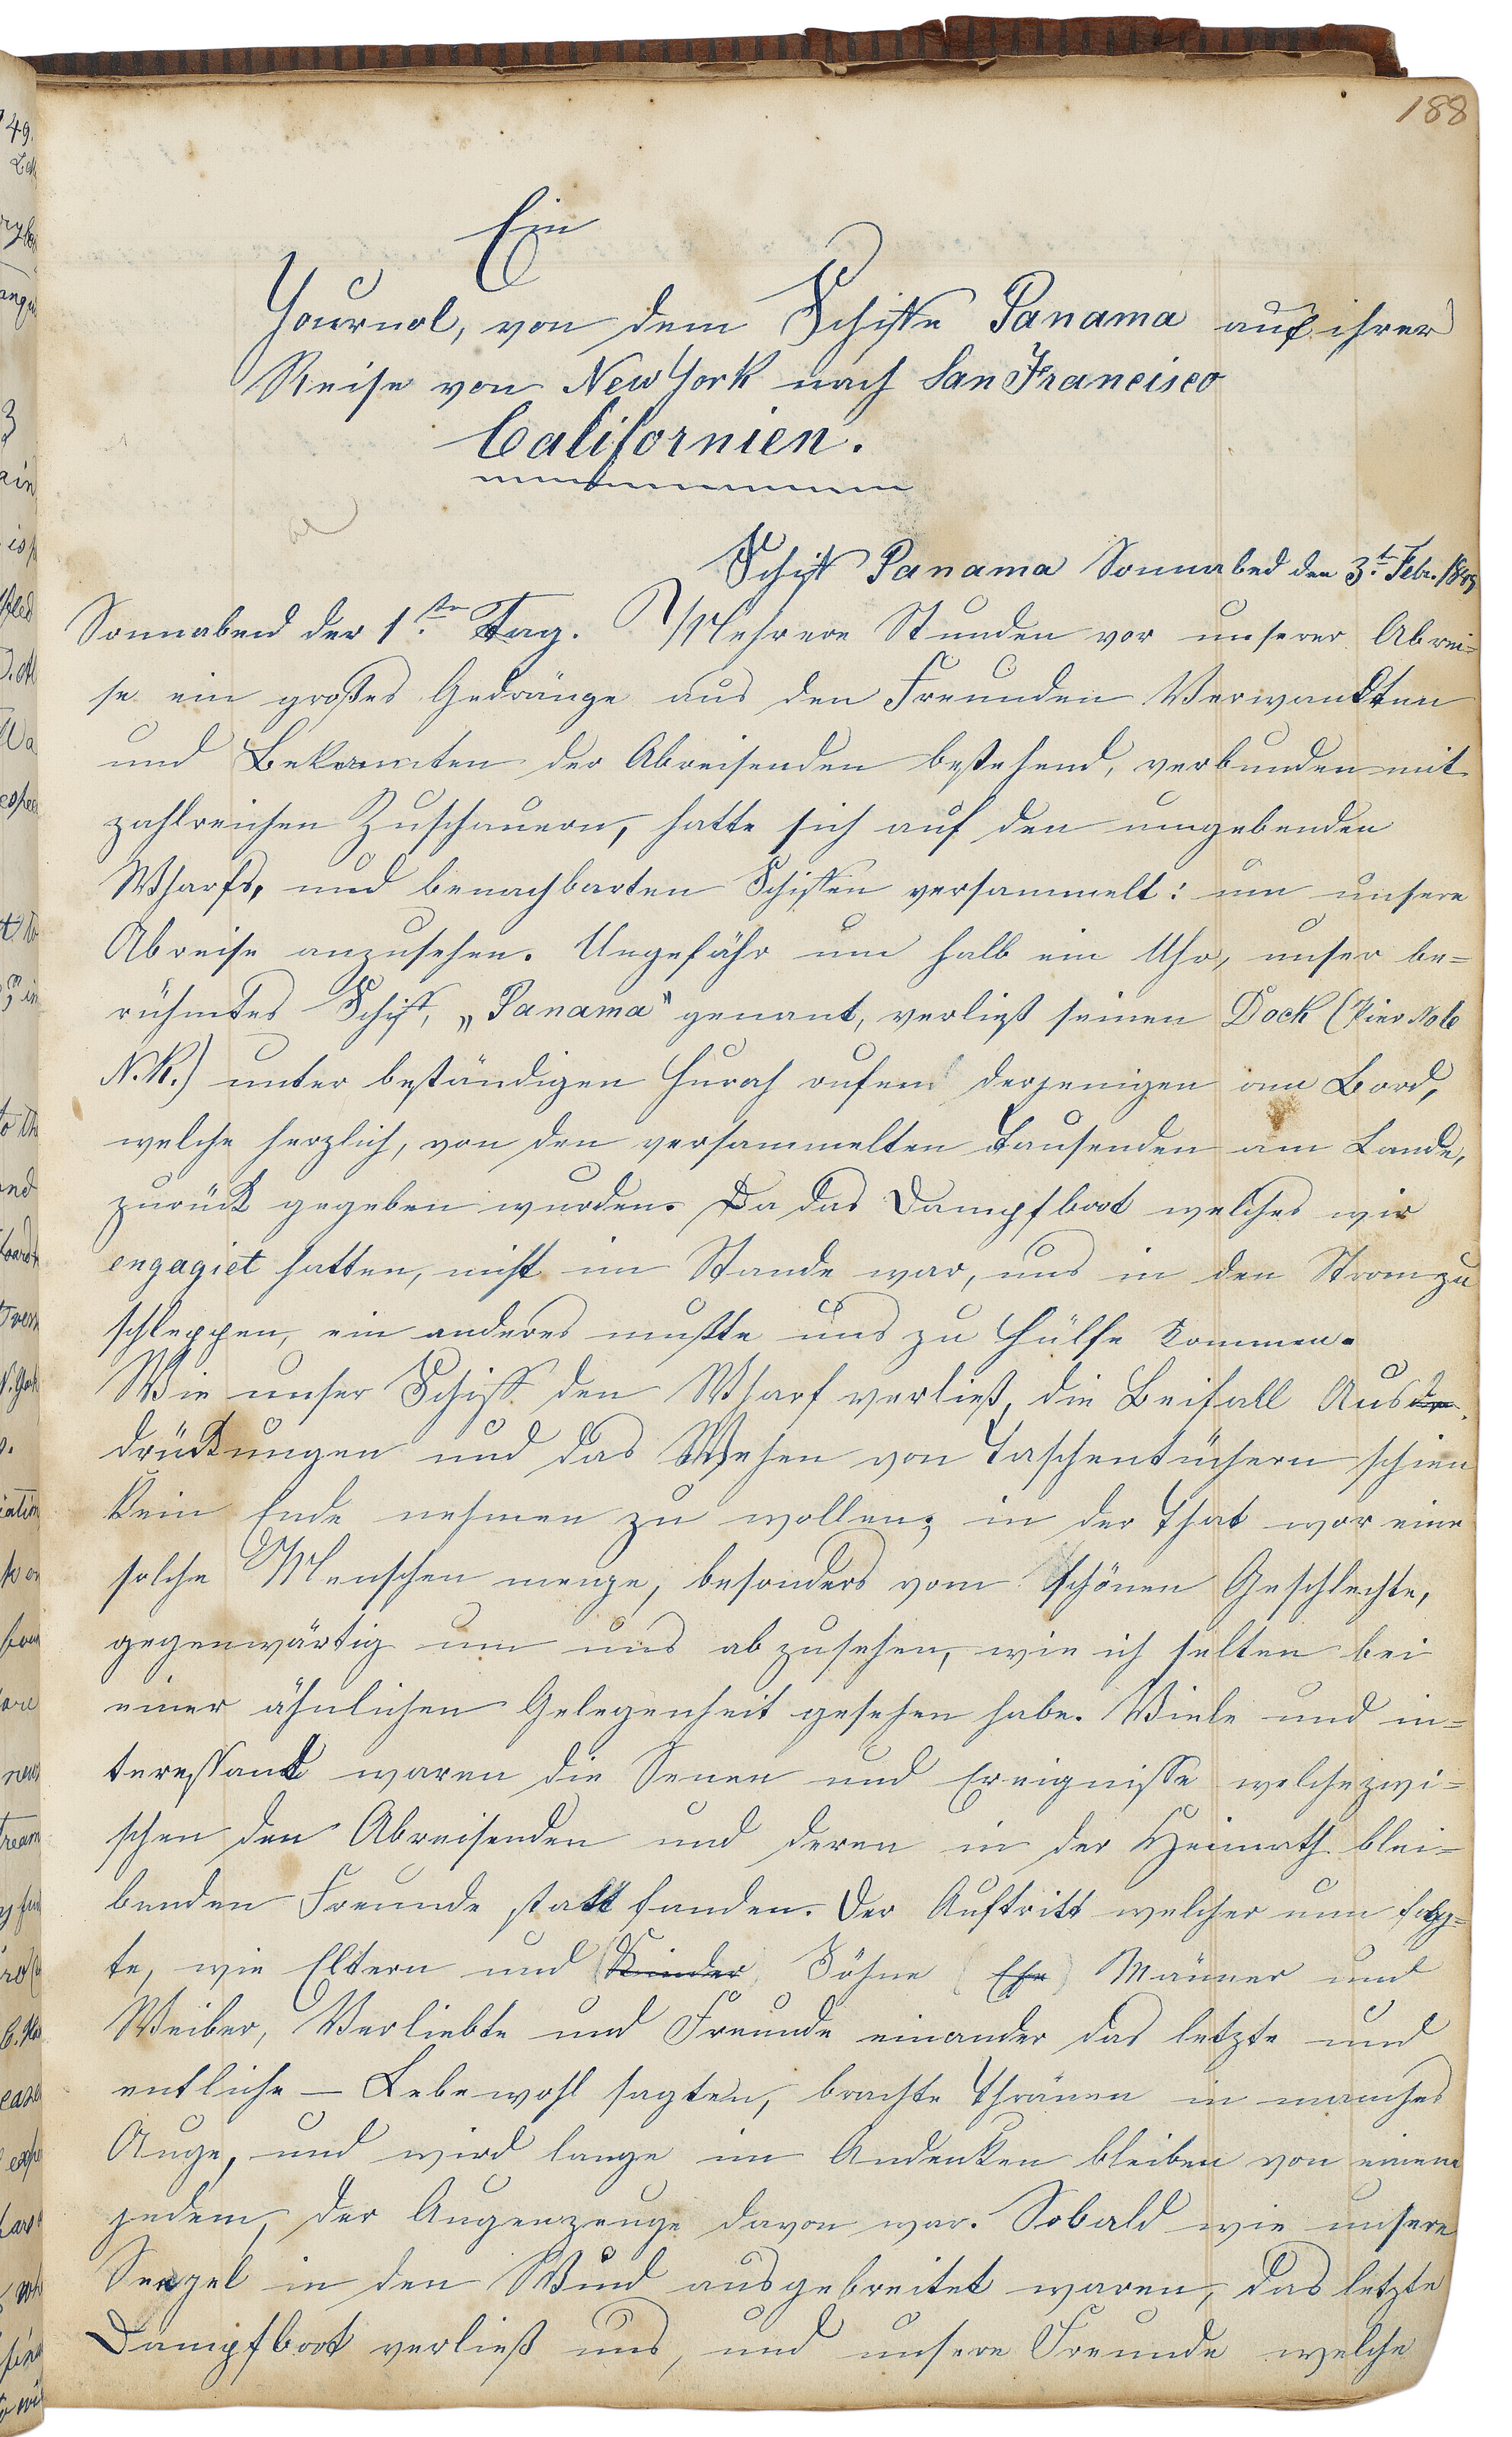 188
Ein
Journal, von dem Schiffe Panama auf ihrer
Reise von New York nach San Francisco
Californien.
Schiff Panama Sonnabed den 3t. Febr. 1849
Sonnabend der 1ste Tag. Mehrere Stunden vor unserer Abrei=
se ein großes Gedränge aus den Freunden Verwandten
und Bekannten der Abreisenden bestehend, verbunden mit
zahlreichen Zuschauern, hatte sich auf den umgebenden
Wharfs, und benachbarten Schiffen versammelt: um unsere
Abreise anzusehen. Ungefähr um halb ein Uhr, unser be=
rühmtes Schiff, „Panama" genant, verließ seinen Dock (Pier No 6
N.R.) unter beständigen Hurah rufen derjenigen am Bord,
welche herzlich, von den versammelten Tausenden am Lande,
zurück gegeben wurden. Da das Dampfboot welches wir
engagiet hatten, nicht im Stande war, uns in den Strom zu
schleppen, ein anderes mußte uns zu Hülfe kommen.
Wie unser Schiff den Wharf verließ, die Beifall Aus
drückungen und das Wehen von Taschentüchern schien
kein Ende nehmen zu wollen; in der That war eine
solche Menschen menge, besonders vom schönen Geschlechte,
gegenwärtig um uns ab zusehen, wie ich selten bei
einer ähnlichen Gelegenheit gesehen habe. Viele und in=
teressant waren die Senen und Ereignisse welche zwi=
schen den Abreisenden und deren in der Heimath blei=
benden Freunde statt fanden. Der Auftritt welcher nun folg=
te, wie Eltern und (Kinder) Söhne (Ehe) Männer und
Weiber, Verliebte und Freunde einander das letzte und
entliche — Lebewohl sagten, brachte Thränen in manches
Auge, und wird lange im Andenken bleiben von einem
jedem, der Augenzeuge davon war. Sobald wie unsere
Seegel in den Wind ausgebreitet waren, das letzte
Dampfboot verließ uns, und unsere Freunde welche